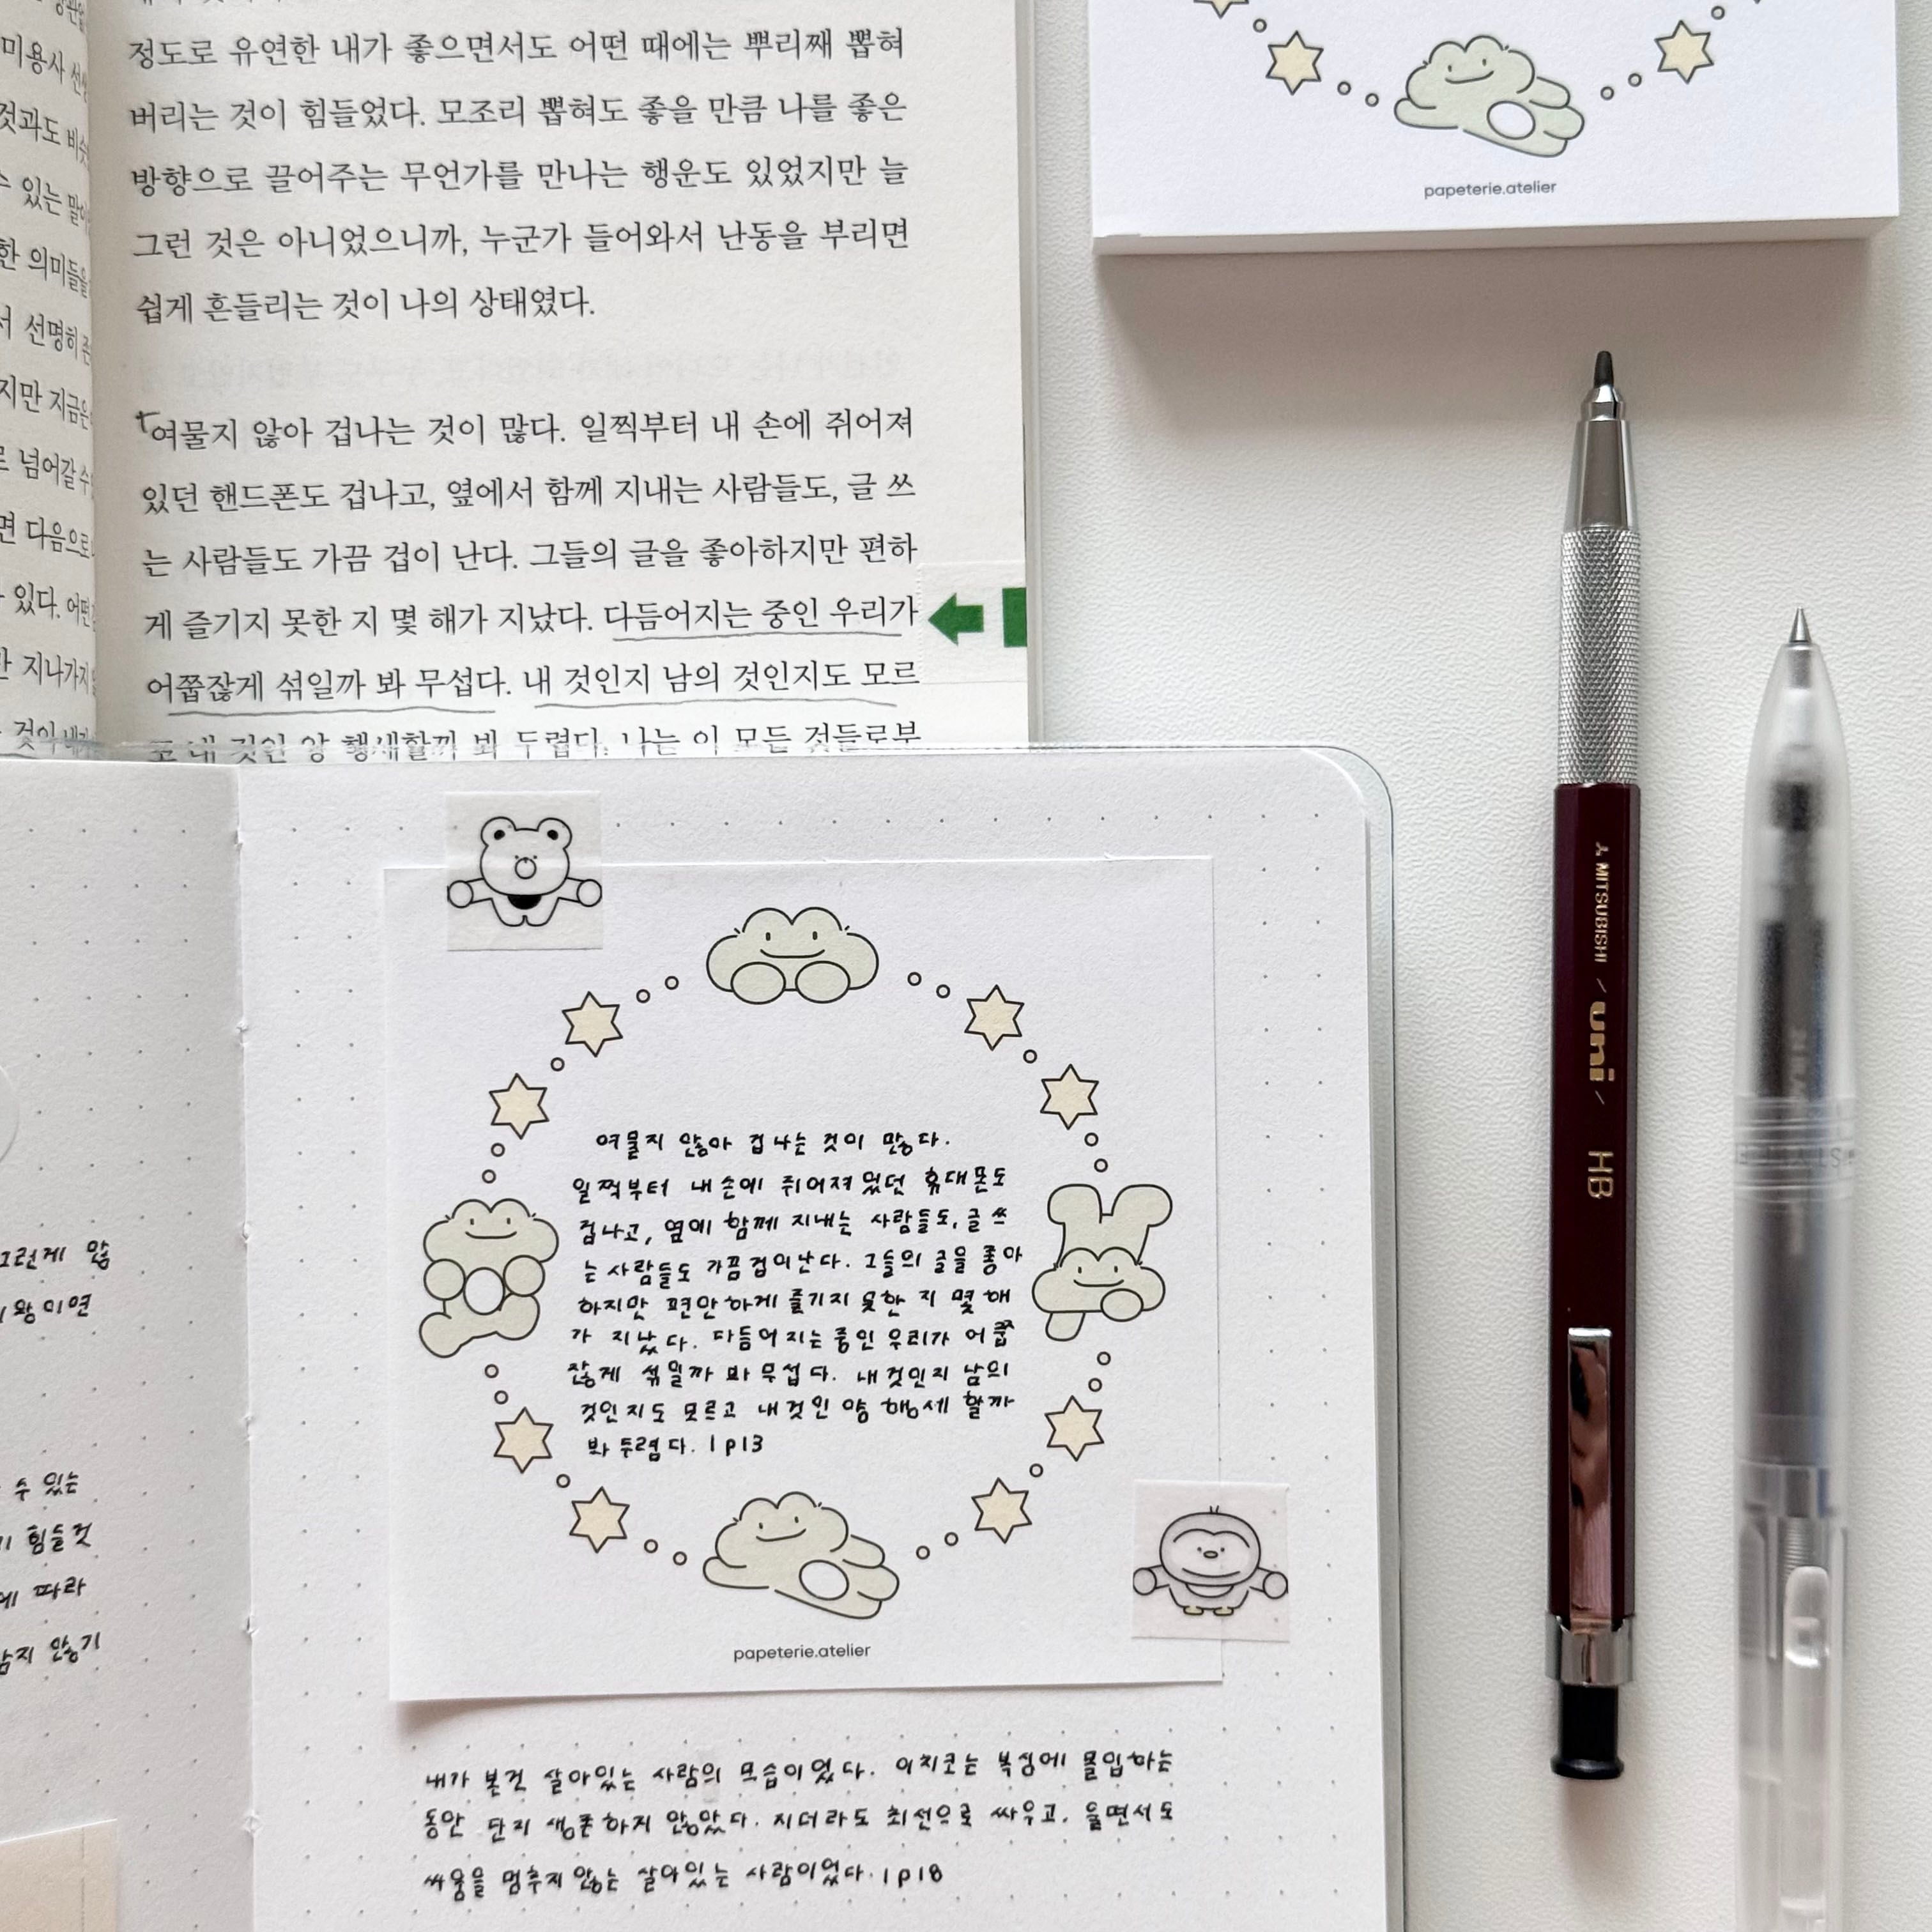 미용사 선생
것과도 비슷
수 있는 말이
한 의미들을
서 선명히 존
지만 지금은
로 넘어갈 수
면 다음으로
있다. 어떤
만 지나가지
것이 내가
정도로 유연한 내가 좋으면서도 어떤 때에는 뿌리째 뽑혀
버리는 것이 힘들었다. 모조리 뽑혀도 좋을 만큼 나를 좋은
방향으로 끌어주는 무언가를 만나는 행운도 있었지만 늘
그런 것은 아니었으니까, 누군가 들어와서 난동을 부리면
쉽게 흔들리는 것이 나의 상태였다.
여물지 않아 겁나는 것이 많다. 일찍부터 내 손에 쥐어져
있던 핸드폰도 겁나고, 옆에서 함께 지내는 사람들도, 글 쓰
는 사람들도 가끔 겁이 난다. 그들의 글을 좋아하지만 편하
게 즐기지 못한 지 몇 해가 지났다. 다듬어지는 중인 우리가
어쭙잖게 섞일까 봐 무섭다. 내 것인지 남의 것인지도 모르
고 내 것인 양 행세할까 봐 두렵다. 나는 이 모든 것들로부
papeterie.atelier
MITSUBISHI / uni / HB
그런게 많
왕이면
수 있는
힘들 것
에 따라
남지 않기
여물지 않아 겁나는 것이 많다.
일찍부터 내 손에 쥐어져 있던 휴대폰도
겁나고, 옆에 함께 지내는 사람들도, 글 쓰
는 사람들도 가끔 겁이 난다. 그들의 글을 좋아
하지만 편안하게 즐기지 못한 지 몇 해
가 지났다. 다듬어지는 중인 우리가 어쭙
잖게 섞일까 봐 무섭다. 내 것인지 남의
것인지도 모르고 내 것인 양 행세 할까
봐 두렵다. | p13
papeterie.atelier
내가 본건 살아있는 사람의 모습이었다. 이치코는 복싱에 몰입하는
동안 단지 생존하지 않았다. 지더라도 최선으로 싸우고, 울면서도
싸움을 멈추지 않는 살아있는 사람이었다. | p18